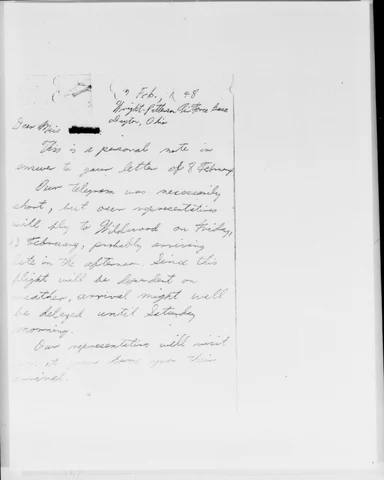 Feb., 48
Wright-Patterson Air Force Base
Dayton, Ohio
Dear Miss
This is a personal note in
answer to your letter of 8 February
Our telegram was necessarily
short, but our representatives
will fly to Wildwood on Friday,
13 February, probably arriving
late in the afternoon. Since this
flight will be dependent on
weather, arrival might well
be delayed until Saturday
morning.
Our representatives will visit
you at your home upon their
arrival.